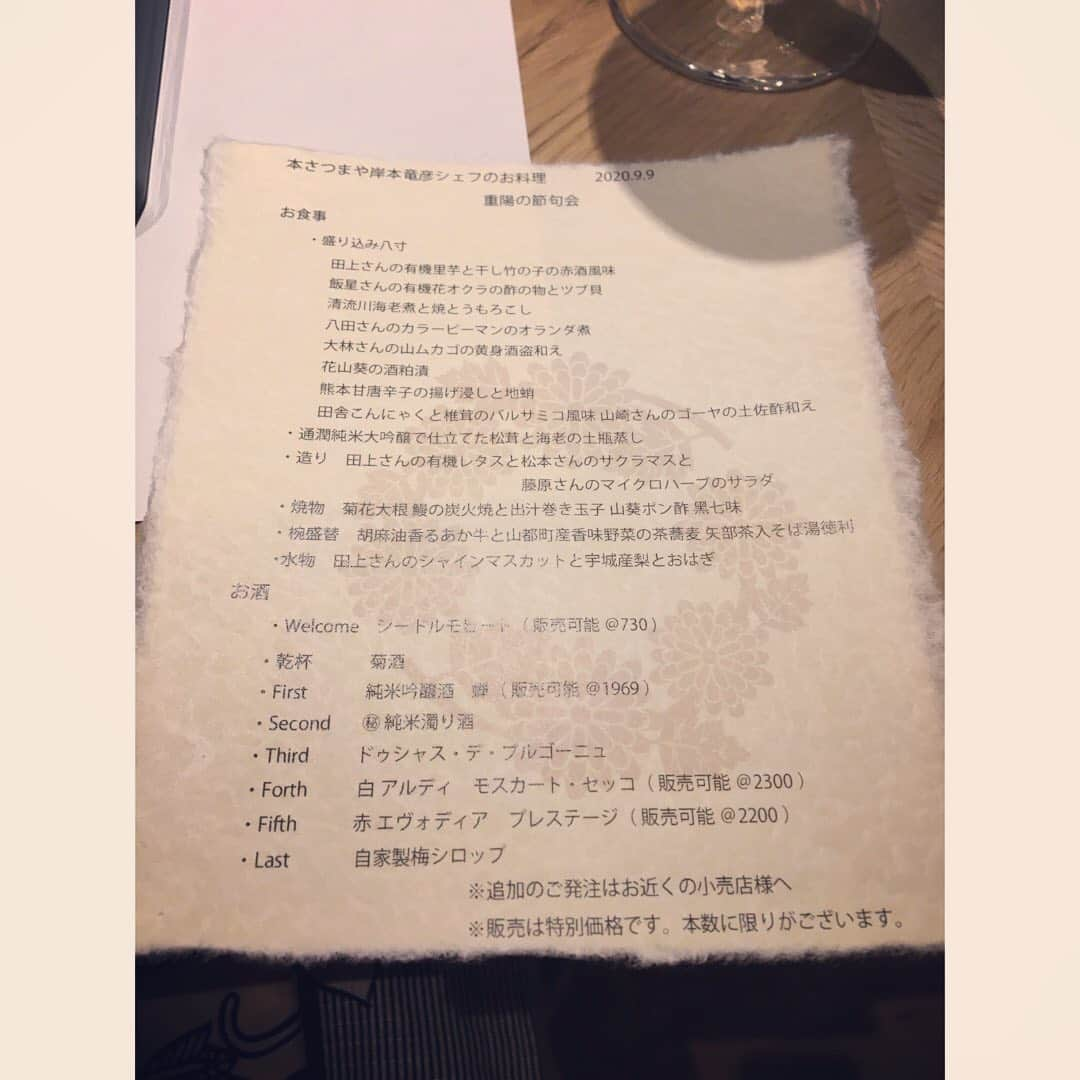 本さつまや岸本竜彦シェフのお料理 2020.9.9
重陽の節句会
お食事
・盛り込み八寸
田上さんの有機里芋と干し竹の子の赤酒風味
飯星さんの有機花オクラの酢の物とツブ貝
清流川海老煮と焼とうもろこし
八田さんのカラーピーマンのオランダ煮
大林さんの山ムカゴの黄身酒盗和え
花山葵の酒粕漬
熊本甘唐辛子の揚げ浸しと地蛸
田舎こんにゃくと椎茸のバルサミコ風味 山崎さんのゴーヤの土佐酢和え
・通潤純米大吟醸で仕立てた松茸と海老の土瓶蒸し
・造り 田上さんの有機レタスと松本さんのサクラマスと
藤原さんのマイクロハーブのサラダ
・焼物 菊花大根 鰻の炭火焼と出汁巻き玉子 山葵ポン酢 黒七味
・椀盛替 胡麻油香るあか牛と山都町産香味野菜の茶蕎麦 矢部茶入そば湯徳利
・水物 田上さんのシャインマスカットと宇城産梨とおはぎ
お酒
・Welcome シードルモヒート（販売可能 @730）
・乾杯 菊酒
・First 純米吟醸酒 蟬（販売可能 @1969）
・Second ㊙ 純米濁り酒
・Third ドゥシャス・デ・ブルゴーニュ
・Forth 白 アルディ モスカート・セッコ（販売可能 @2300）
・Fifth 赤 エヴォディア プレステージ（販売可能 @2200）
・Last 自家製梅シロップ
※追加のご発注はお近くの小売店様へ
※販売は特別価格です。本数に限りがございます。